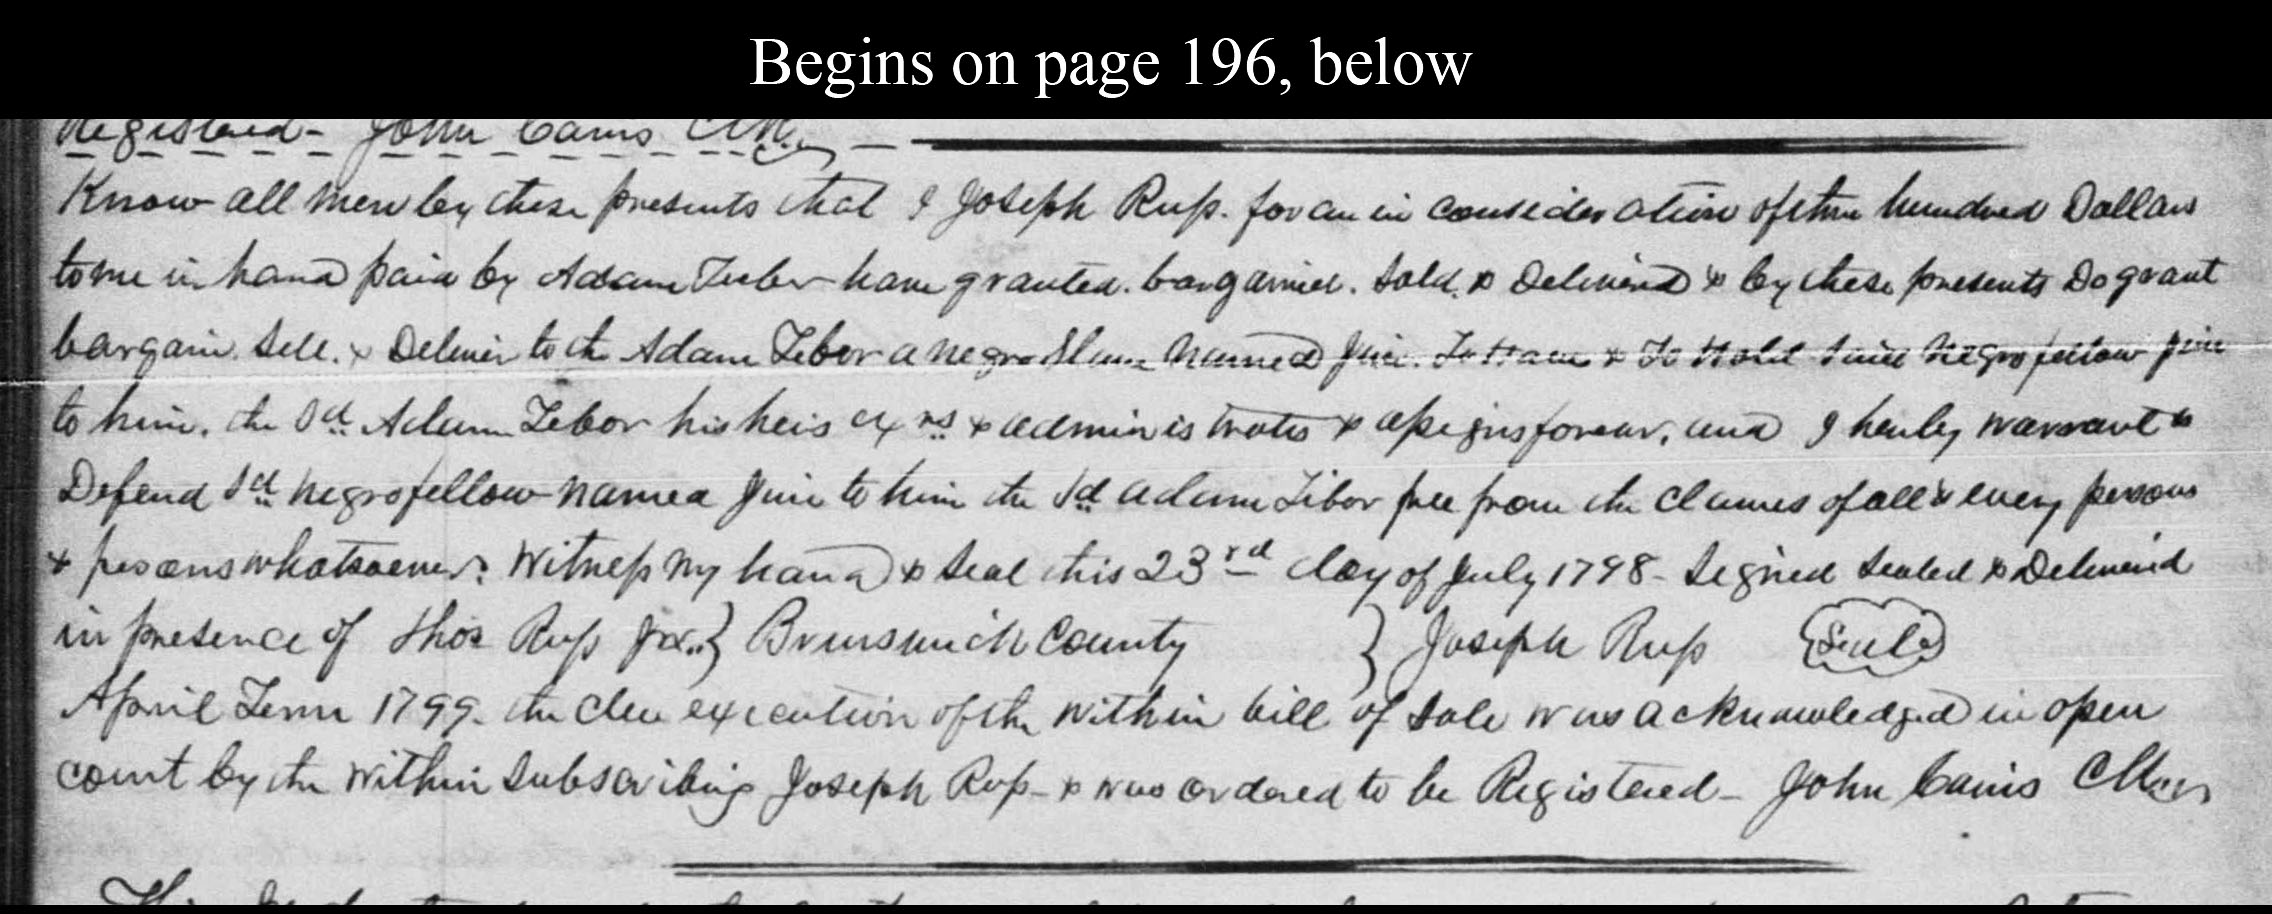 Begins on page 196, below
Registered - John Cains Clk.
Know all men by these presents that I Joseph Russ. for an in consideration of thre hundred Dollars
to me in hand paid by Adam Leeber have granted. bargained. Sold. & Delivered & by these presents Do grant
bargain. Sell. & Deliver to th Adam Lebor a negro Slave Named Jim. To Have & To Hold Said Negro fellow Jim
to him. the Sd. Adam Lebor his heis exrs & administrators & assigns forever. and I hereby warrant &
Defend Sd. negro fellow named Jim to him the Sd Adam Libor free from the Claimes of all & every persons
& persons whatsoever: Witness my hand & Seal this 23rd day of July 1798 - Signed Sealed & Delivered
in presence of Thos Russ Jr..} Brunswick County } Joseph Russ (Seal)
April Term 1799. the due execution of the within bill of Sale was acknowledged in open
court by the within Subscribing Joseph Russ - & was ordered to be Registered - John Cains Clk